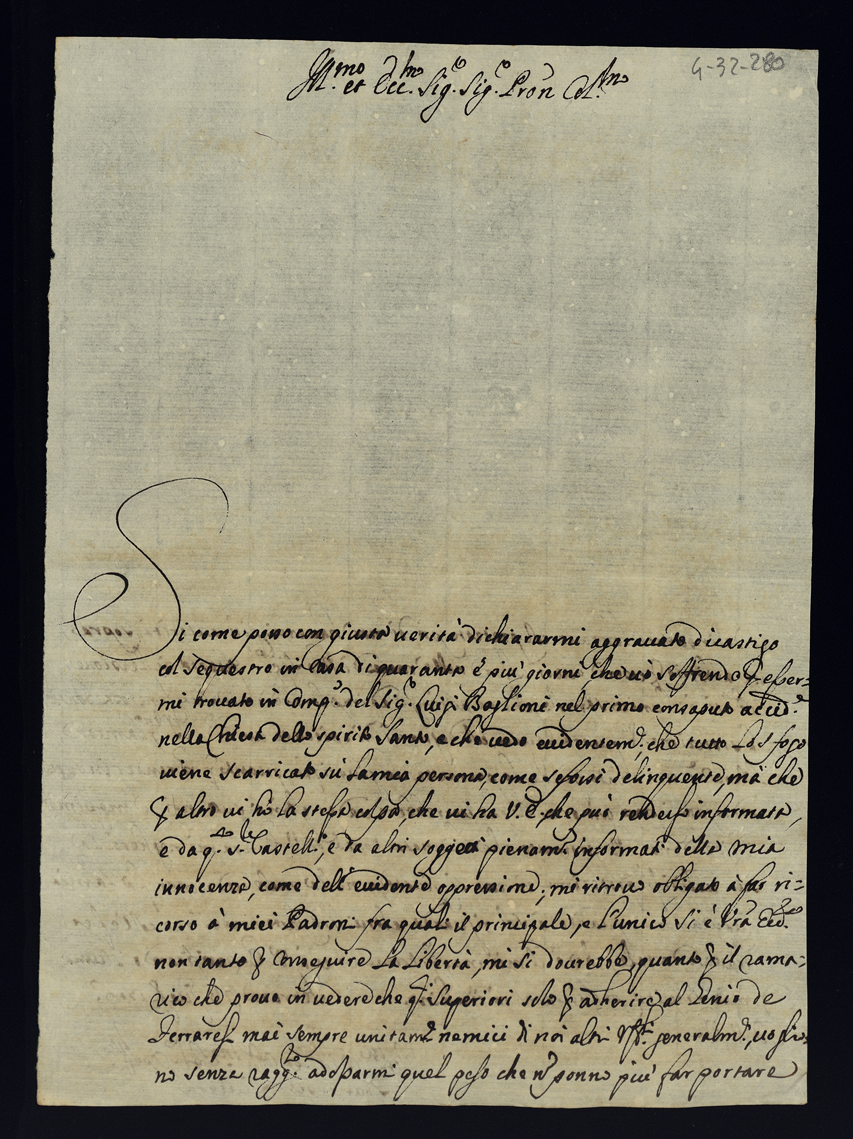 Ill.mo et Ecc.mo Sig.r Sig.r Pron Col.mo
4-32-280
Si come posso con giusta uerità dichiararmi aggrauato di castigo
col sequestro in Casa di quaranta e più giorni che uò soffrendo p esser=
mi trouato in Comp.a del Sig.r Luigi Baglioni nel primo consaputo accid.e
nella Chiesa dello spirito Santo, e che uedo euidentem.e che tutto lo sfogo
uiene scarricato sù la mia persona, come se fossi delinquente, mà che
p altro ui hò la stessa colpa, che ui ha V. E. che può rendersi informata,
e da q.to s.r Castell.o, e da altri soggetti pienam.e informati della mia
innocenza, come dell' euidente oppressione, mi ritrouo obligato à far ri=
corso à miei Padroni frà quali il principale, e l'unico si è Vra Ecc.za
non tanto p conseguire la libertà, mi si dourebbe, quanto p il rama=
rico che prouo in uedere che q.ti superiori solo p adherire al Genio de
Ferraresi mai sempre unitam.e nemici di noi altri generalm.e, uoglio=
no senza ragg.ne adossarmi quel peso che n ponno più far portare